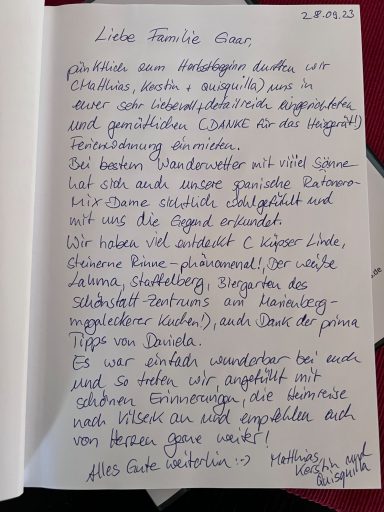 28.09.23
Liebe Familie Gaar,
pünktlich zum Herbstbeginn durften wir
(Matthias, Kerstin + Quisquilla) uns in
eurer sehr liebevoll + detailreich eingerichteten
und gemütlichen (DANKE für das Heizgerät!)
Ferienwohnung einmieten.
Bei bestem Wanderwetter mit viiiel Sonne
hat sich auch unsere spanische Ratonero-
Mix-Dame sichtlich wohlgefühlt und
mit uns die Gegend erkundet.
Wir haben viel entdeckt (Küpser Linde,
Steinerne Rinne - phänomenal!, Der weiße
Lahma, Staffelberg, Biergarten des
Schönstatt-Zentrums am Marienberg -
megaleckerer Kuchen!), auch Dank der prima
Tipps von Daniela.
Es war einfach wunderbar bei euch
und so treten wir, angefüllt mit
schönen Erinnerungen, die Heimreise
nach Vilseck an und empfehlen euch
von Herzen gerne weiter!
Alles Gute weiterhin :-)
Matthias,
Kerstin und
Quisquilla